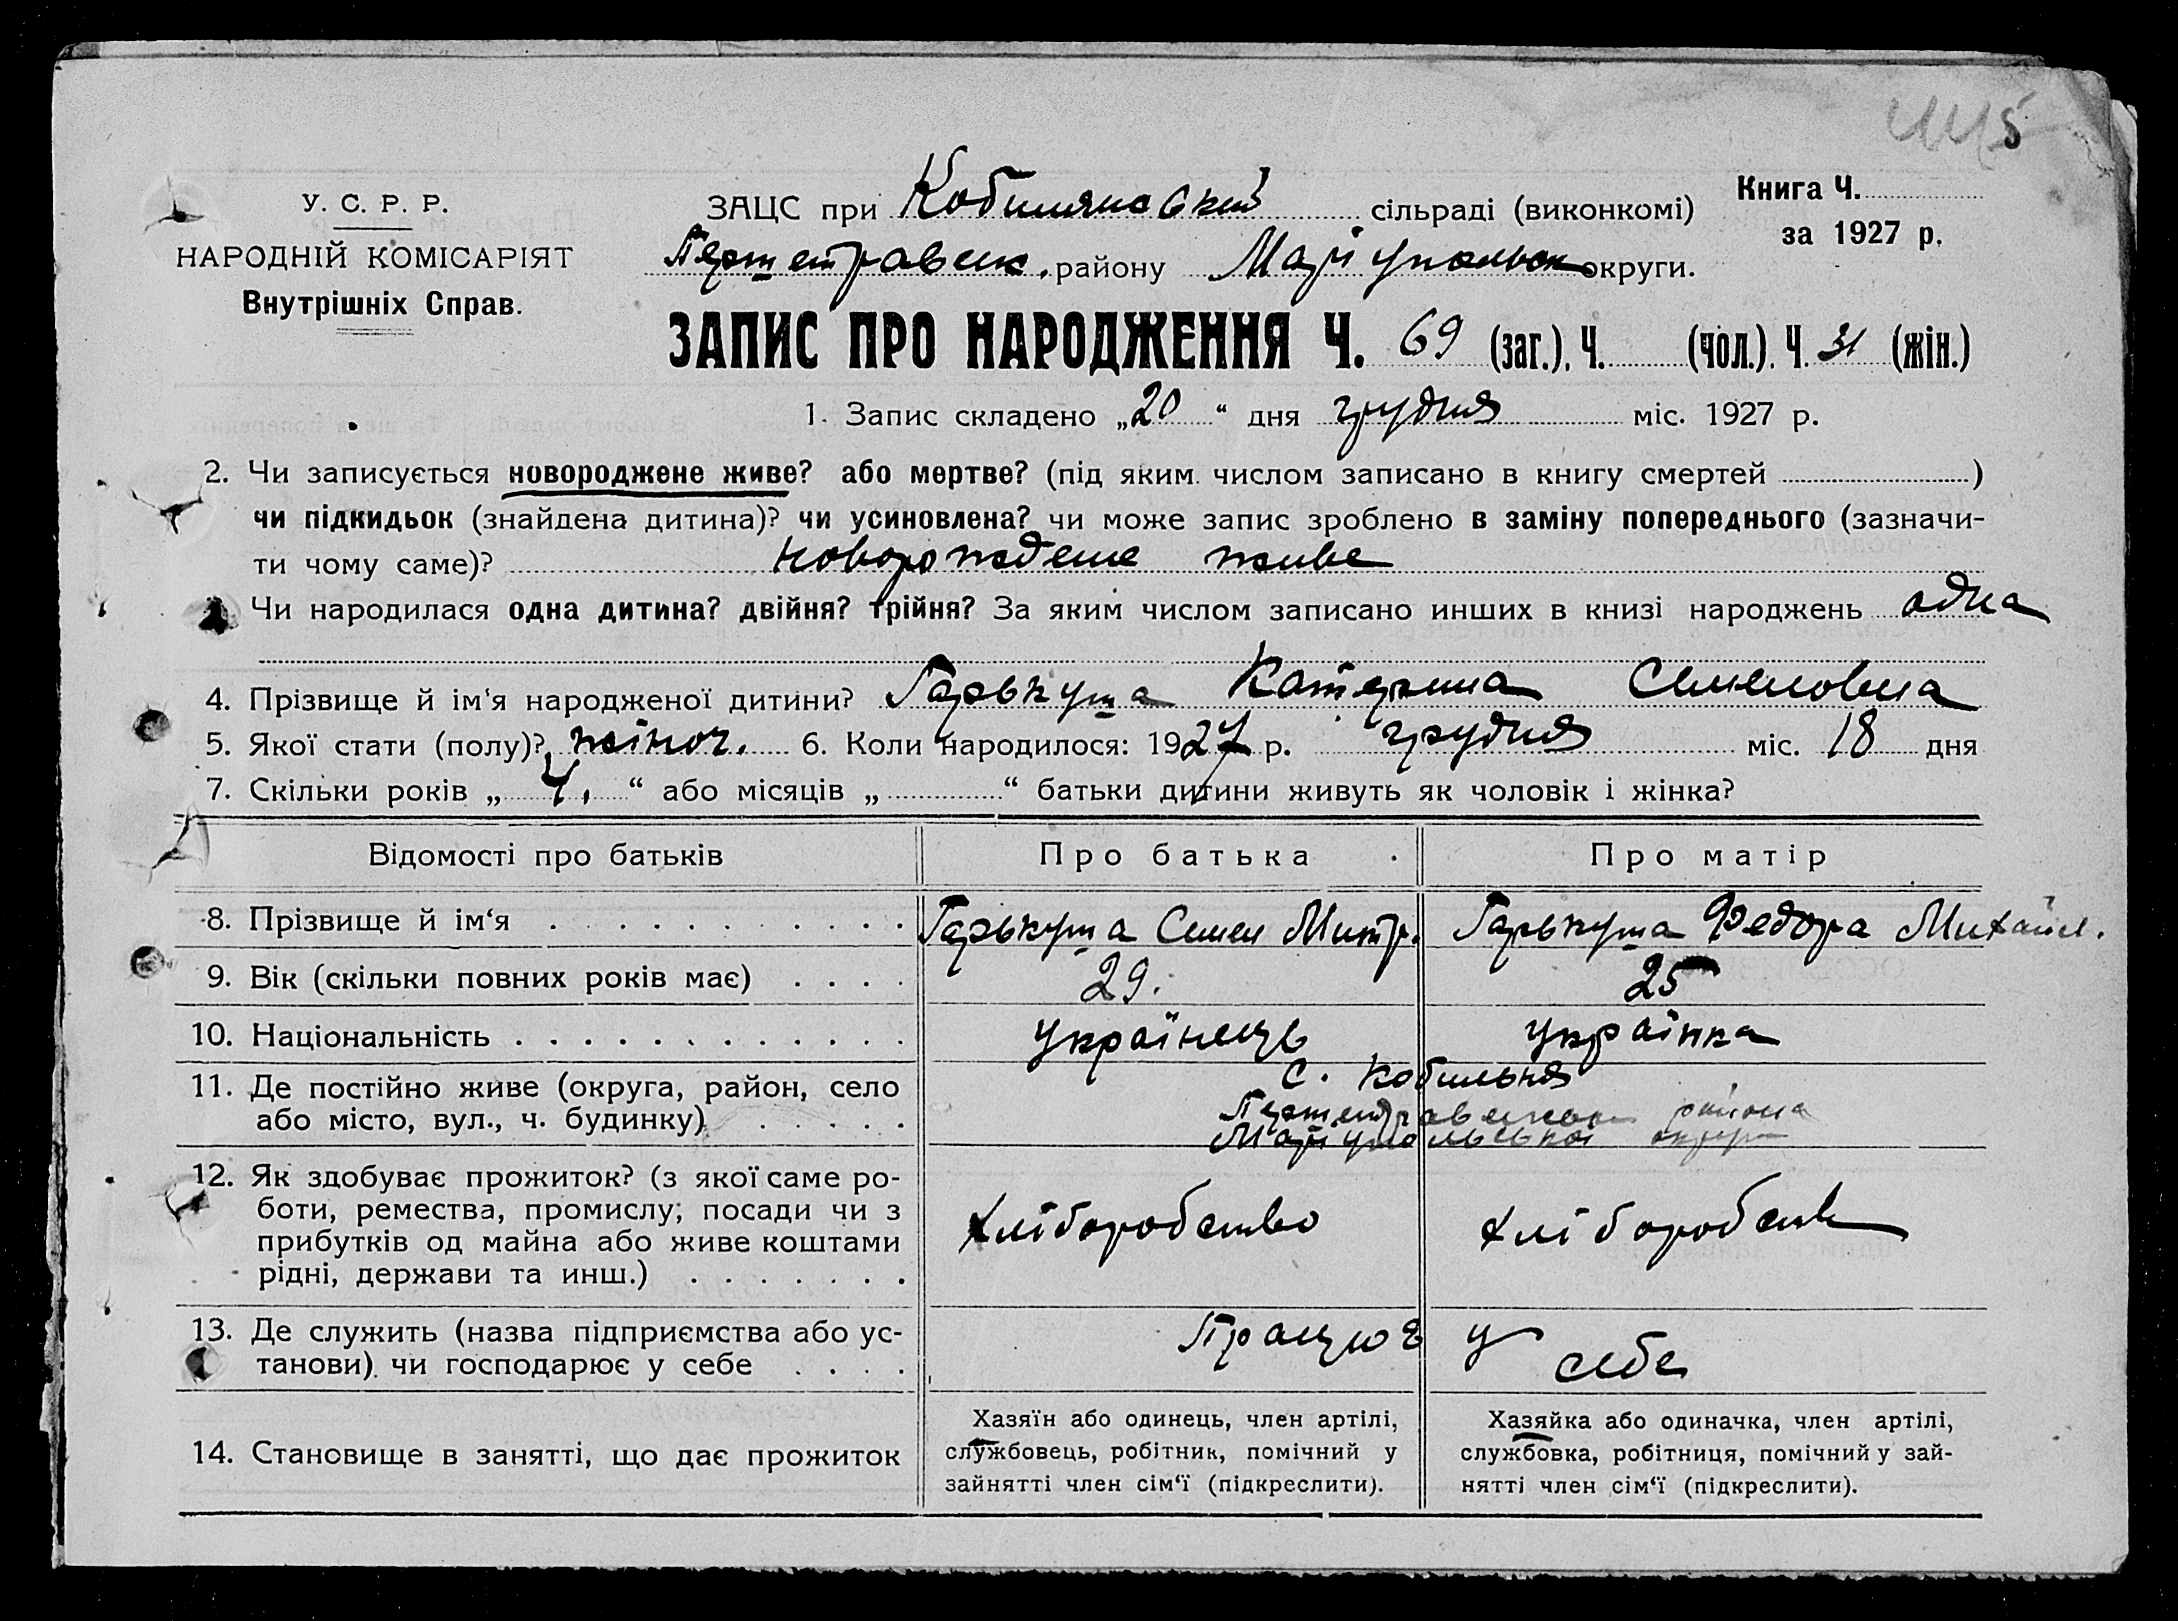 445
У. С. Р. Р.
НАРОДНІЙ КОМІСАРІЯТ
Внутрішніх Справ.
ЗАЦС при Кобилянський сільраді (виконкомі)
Першетравенк. району Маріупольськ округи.
Книга Ч.
за 1927 р.
ЗАПИС ПРО НАРОДЖЕННЯ Ч. 69 (заг.), Ч. (чол.). Ч. 31 (жін.)
1. Запис складено „20“ дня грудня міс. 1927 р.
2. Чи записується новороджене живе? або мертве? (під яким числом записано в книгу смертей )
чи підкидьок (знайдена дитина)? чи усиновлена? чи може запис зроблено в заміну попереднього (зазначи-
ти чому саме)? новорождене живе
Чи народилася одна дитина? двійня? трійня? За яким числом записано инших в книзі народжень одна
4. Прізвище й ім‘я народженої дитини? Гарькуша Катерина Семеновна
5. Якої стати (полу)? жіноч. 6. Коли народилося: 1927 р. грудня міс. 18 дня
7. Скільки років „ 4. “ або місяців „ “ батьки дитини живуть як чоловік і жінка?
Відомості про батьків Про батька Про матір
8. Прізвище й ім‘я Гарькуша Семен Митр. Гарькуша Федора Михайл.
9. Вік (скільки повних років має) 29. 25
10. Національність українець українка
11. Де постійно живе (округа, район, село
або місто, вул., ч. будинку)
с. Кобильня
района
Маріупольської
12. Як здобуває прожиток? (з якої саме ро-
боти, ремества, промислу, посади чи з
прибутків од майна або живе коштами
рідні, держави та инш.)
хліборобство хлібороботв
13. Де служить (назва підприємства або ус-
танови) чи господарює у себе
Працює у себе
14. Становище в занятті, що дає прожиток
Хазяїн або одинець, член артілі,
службовець, робітник, помічний у
зайнятті член сім‘ї (підкреслити).
Хазяйка або одиначка, член артілі,
службовка, робітниця, помічний у зай-
нятті член сім‘ї (підкреслити).